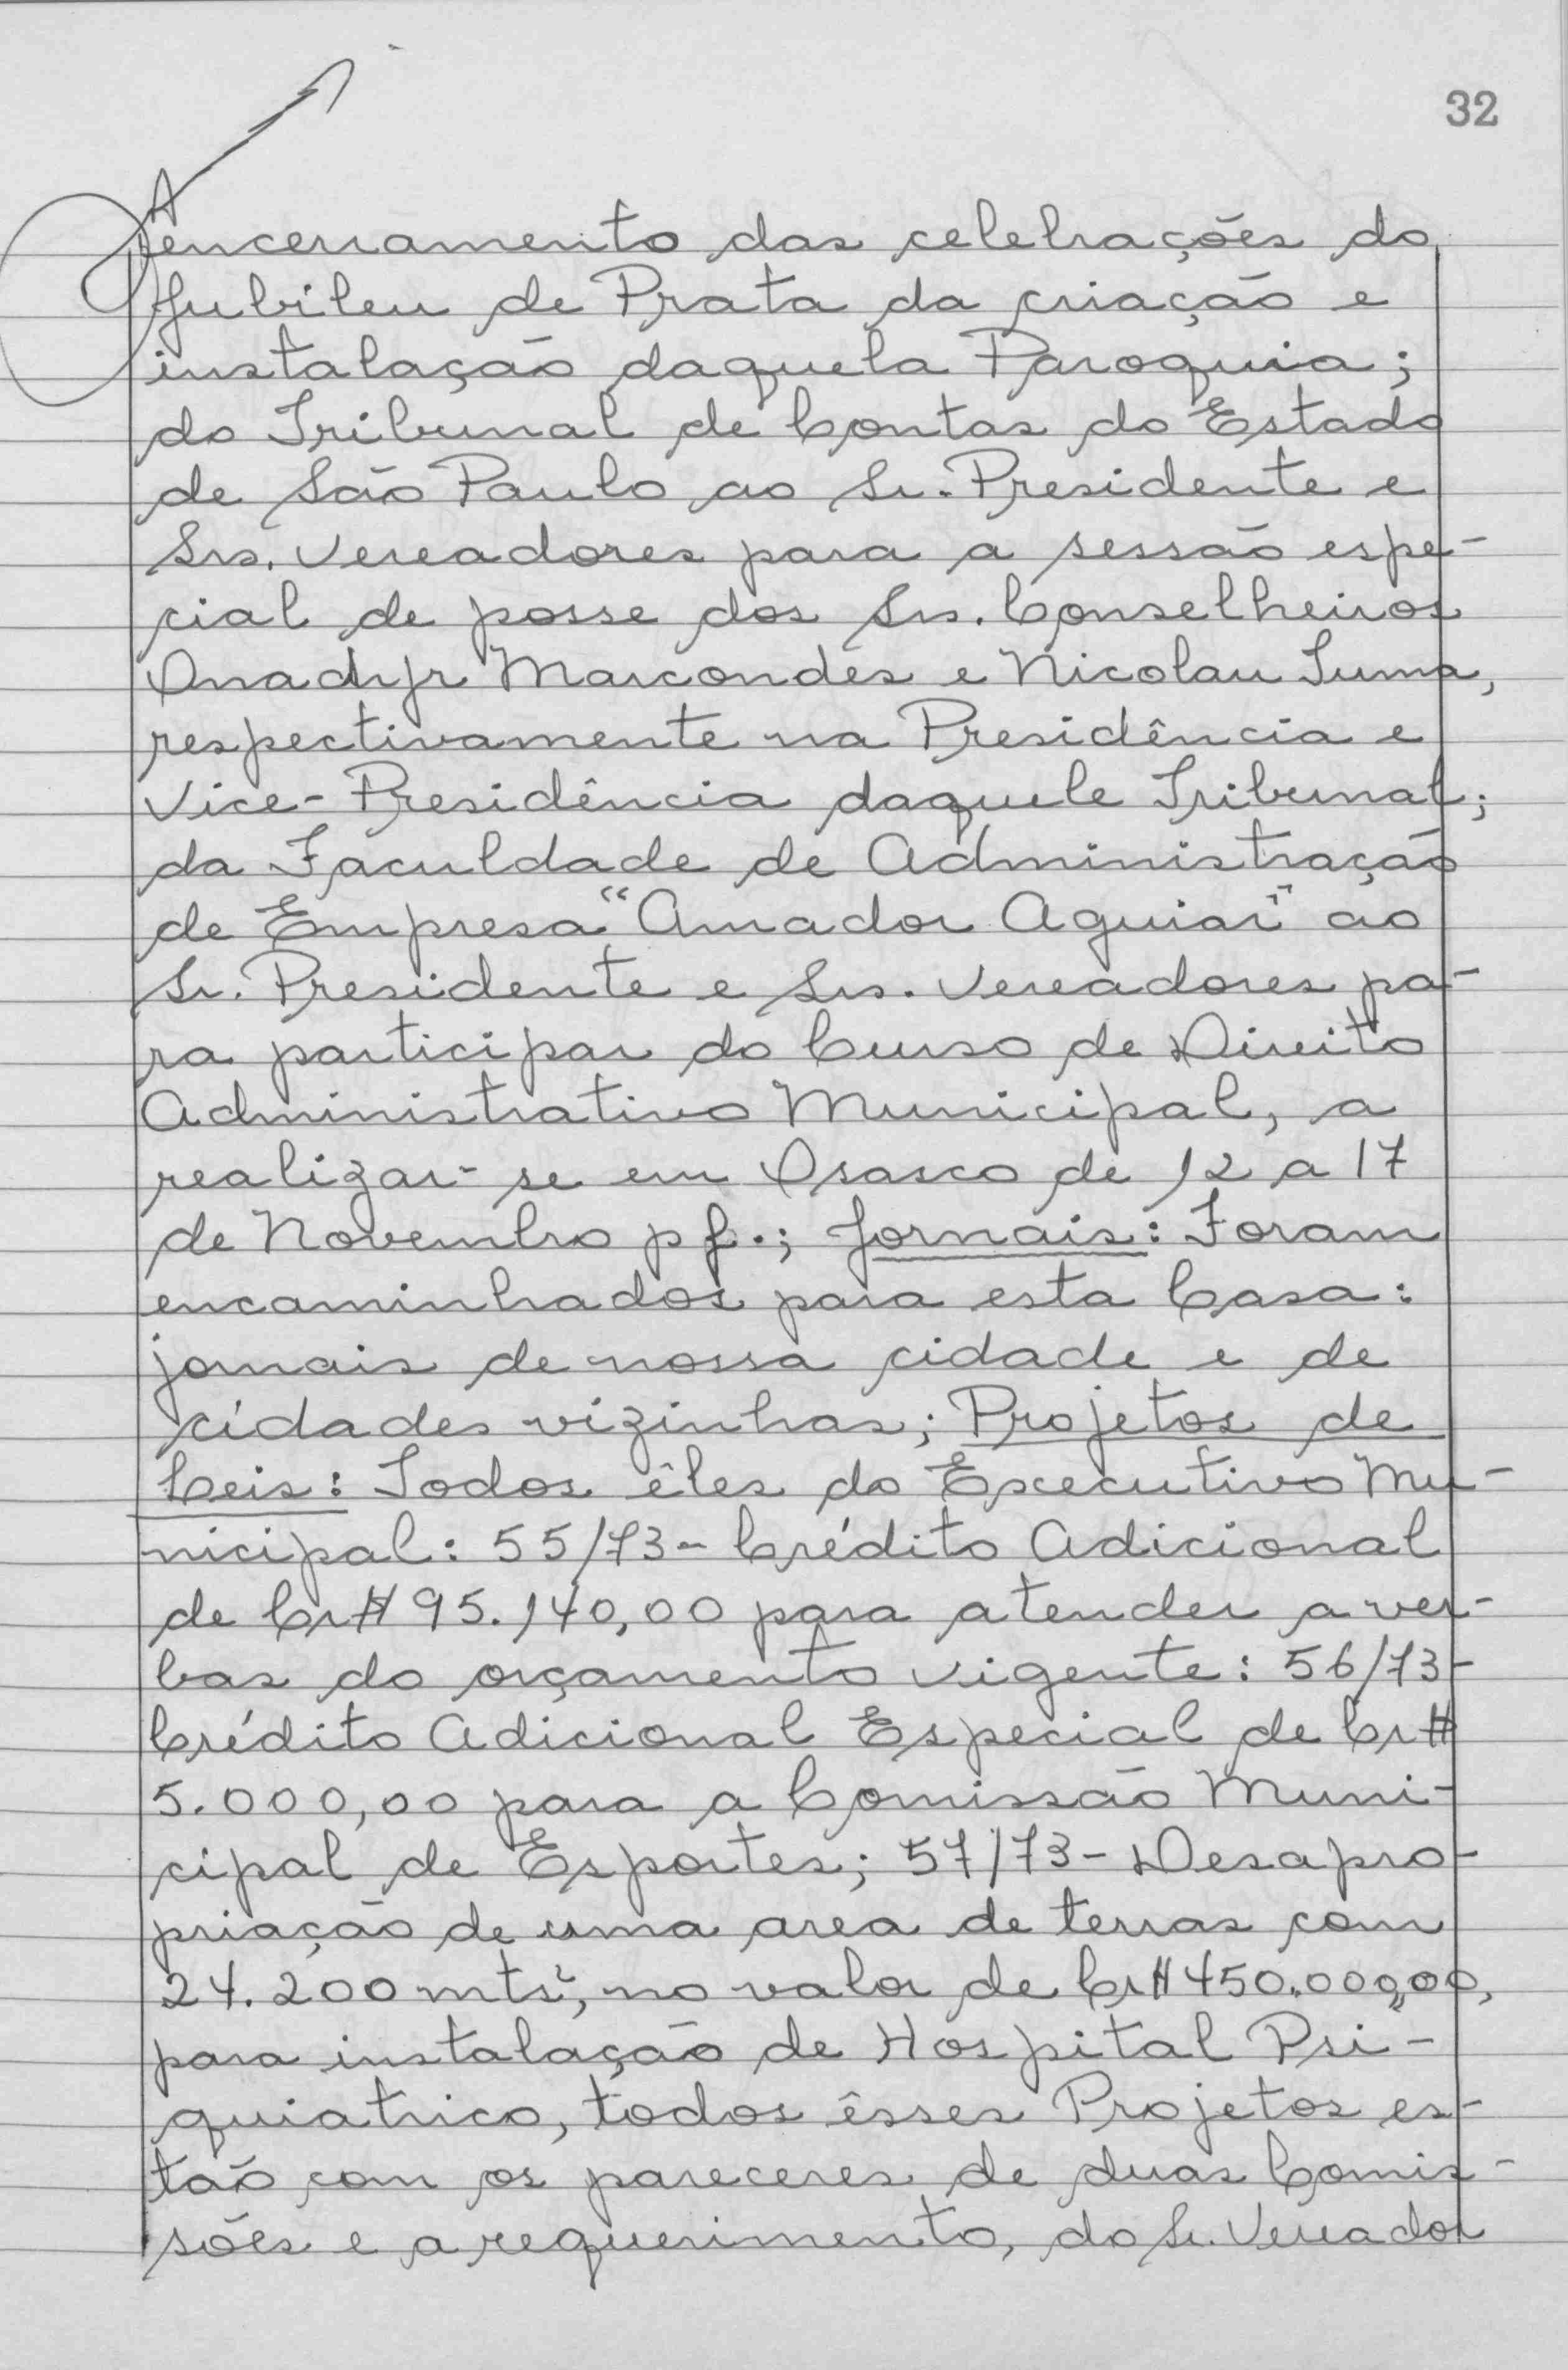 32
encerramento das celebrações do
Jubileu de Prata da criação e
instalação daquela Paroquia;
do Tribunal de Contas do Estado
de São Paulo ao Sr. Presidente e
Srs. Vereadores para a sessão espe-
cial de posse dos Srs. Conselheiros
Onadyr Marcondes e Nicolau Tuma,
respectivamente na Presidência e
Vice-Presidência daquele Tribunal;
da Faculdade de Administração
de Empresa "Amador Aguiar" ao
Sr. Presidente e Srs. Vereadores pa-
ra participar do Curso de Direito
Administrativo Municipal, a
realizar-se em Osasco de 12 a 17
de Novembro pf.; Jornais: Foram
encaminhados para esta Casa:
jornais de nossa cidade e de
cidades vizinhas; Projetos de
Leis: Todos êles do Executivo Mu-
nicipal: 55/73- Crédito Adicional
de Cr$ 95.140,00 para atender a ver-
bas do orçamento vigente: 56/73-
Crédito Adicional Especial de Cr$
5.000,00 para a Comissão Muni-
cipal de Esportes; 57/73- Desapro-
priação de uma area de terras com
24.200 mts², no valor de Cr$ 450.000,00,
para instalação de Hospital Psi-
quiatrico, todos êsses Projetos es-
tão com os pareceres de duas Comis-
sões e a requerimento, do Sr. Vereador